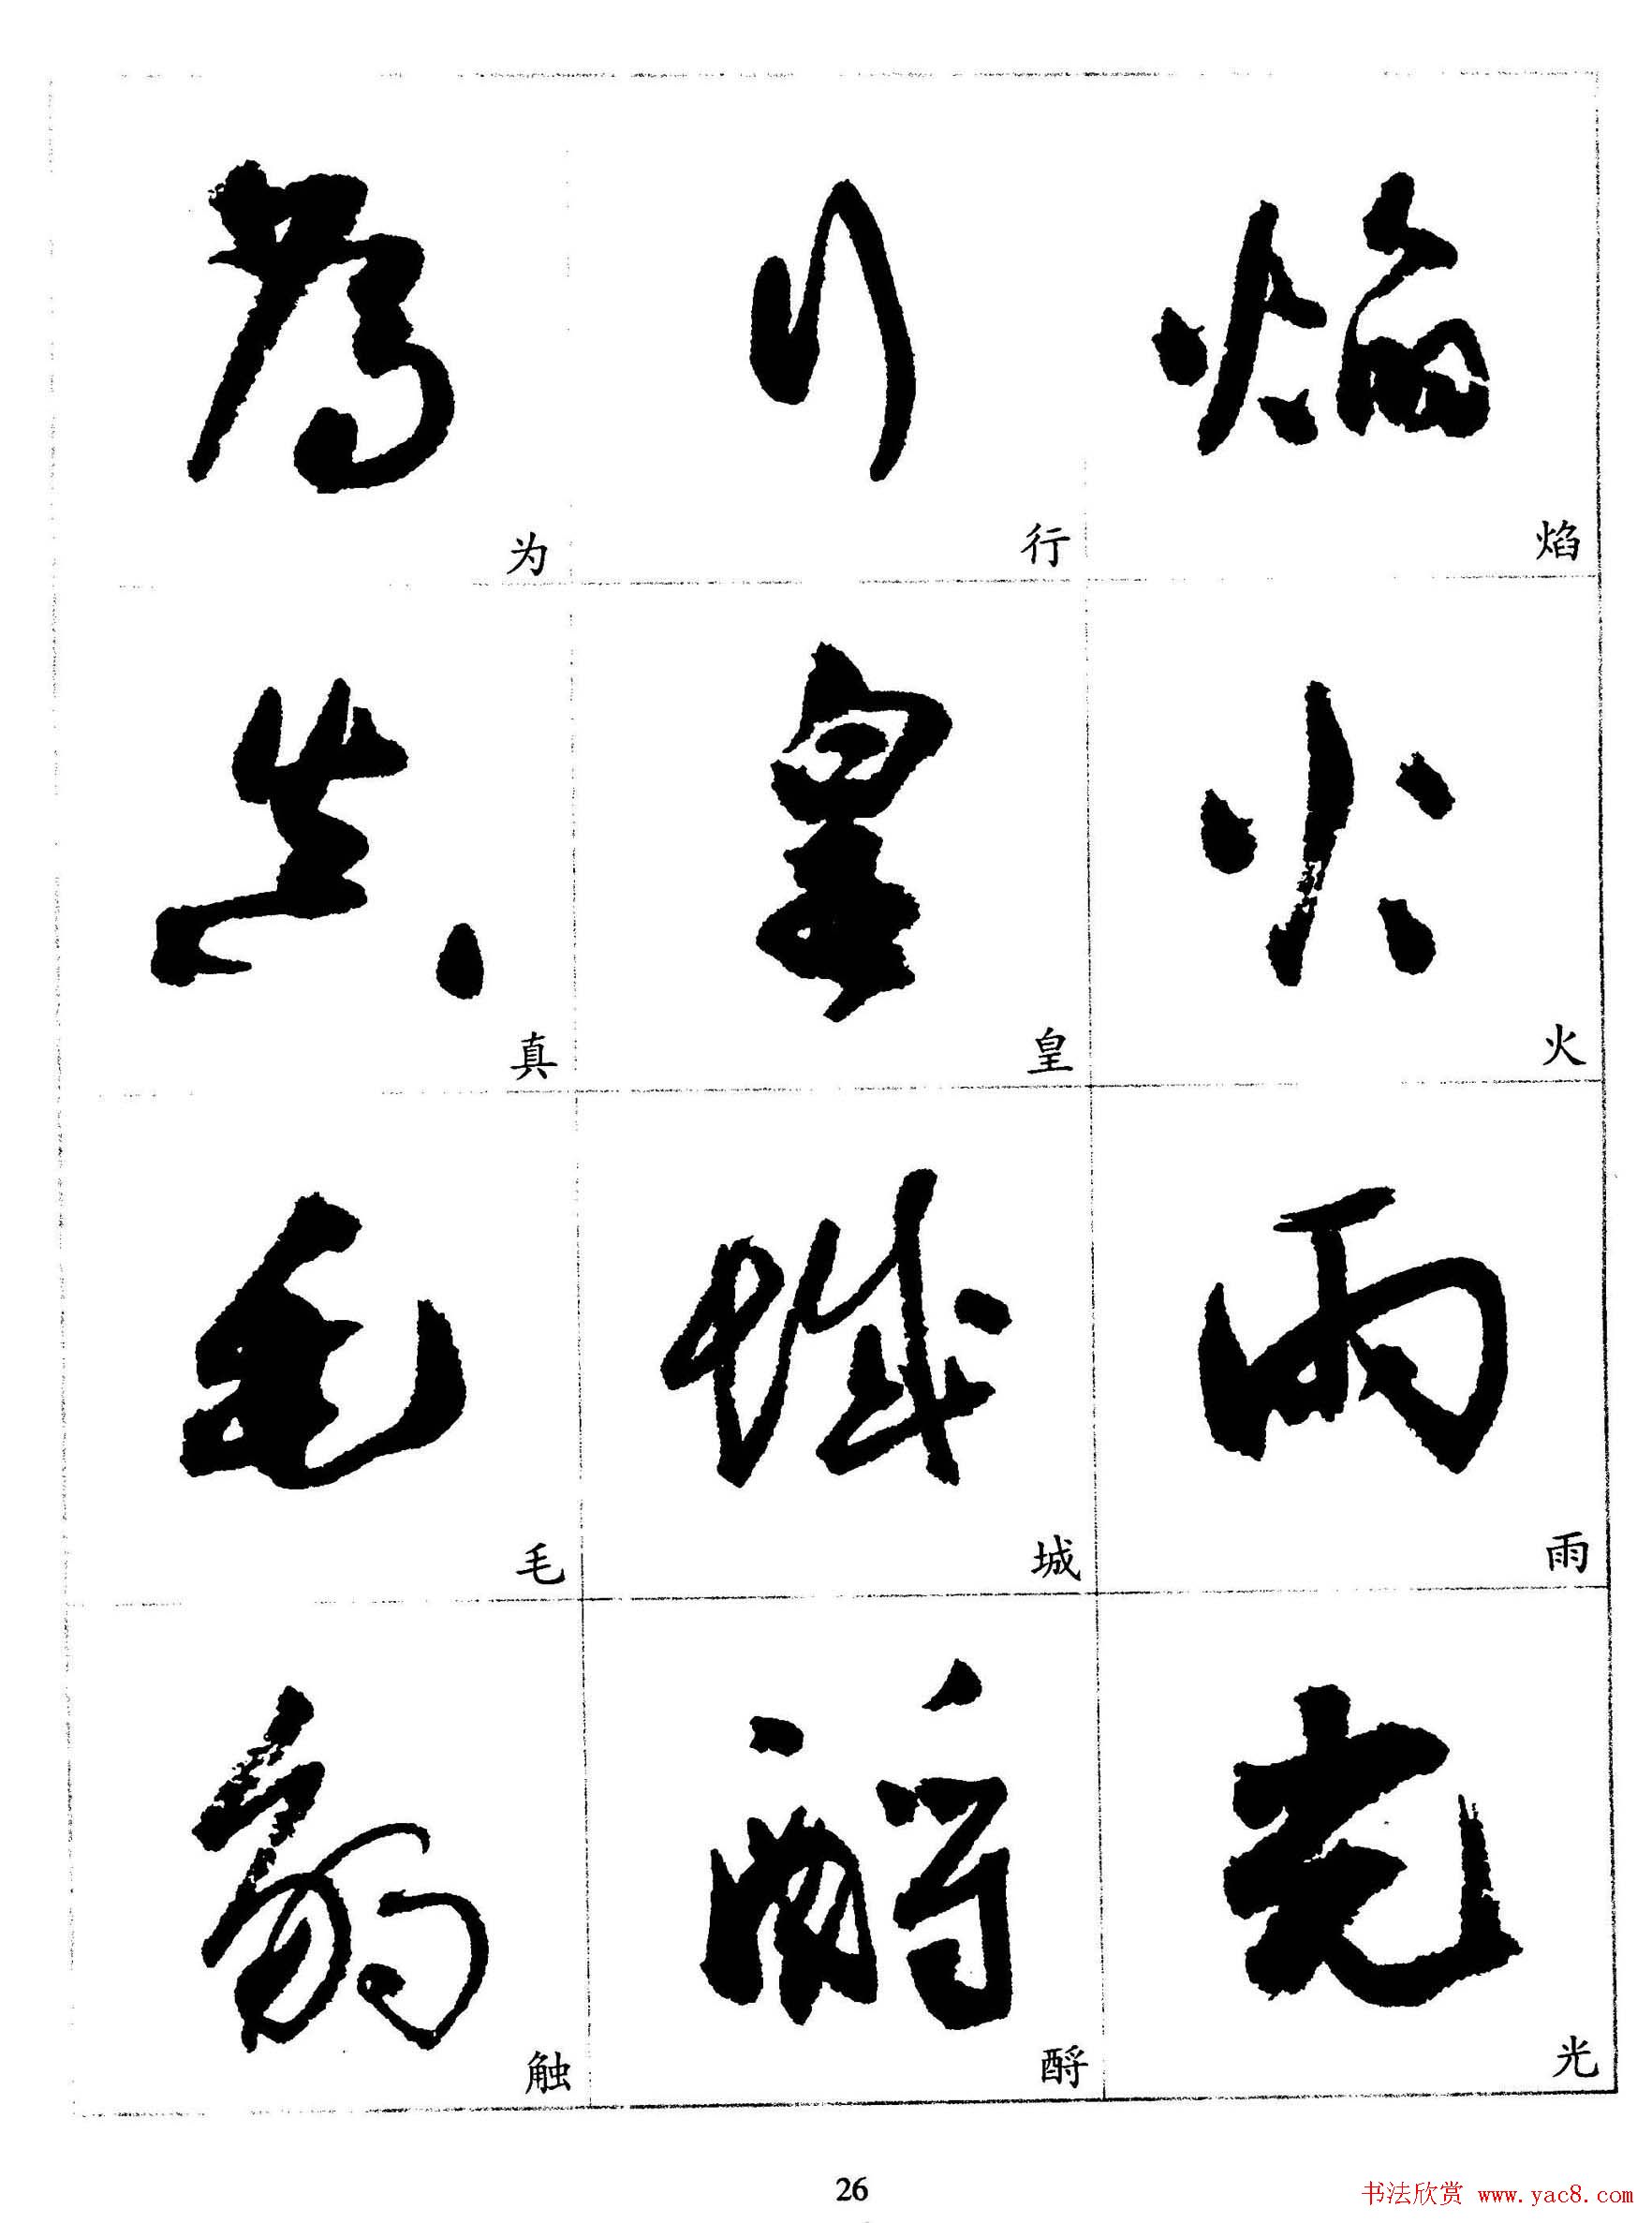 焰 火 雨 光
行 皇 城 酹
为 真 毛 触
26
书法欣赏 www.yac8.com